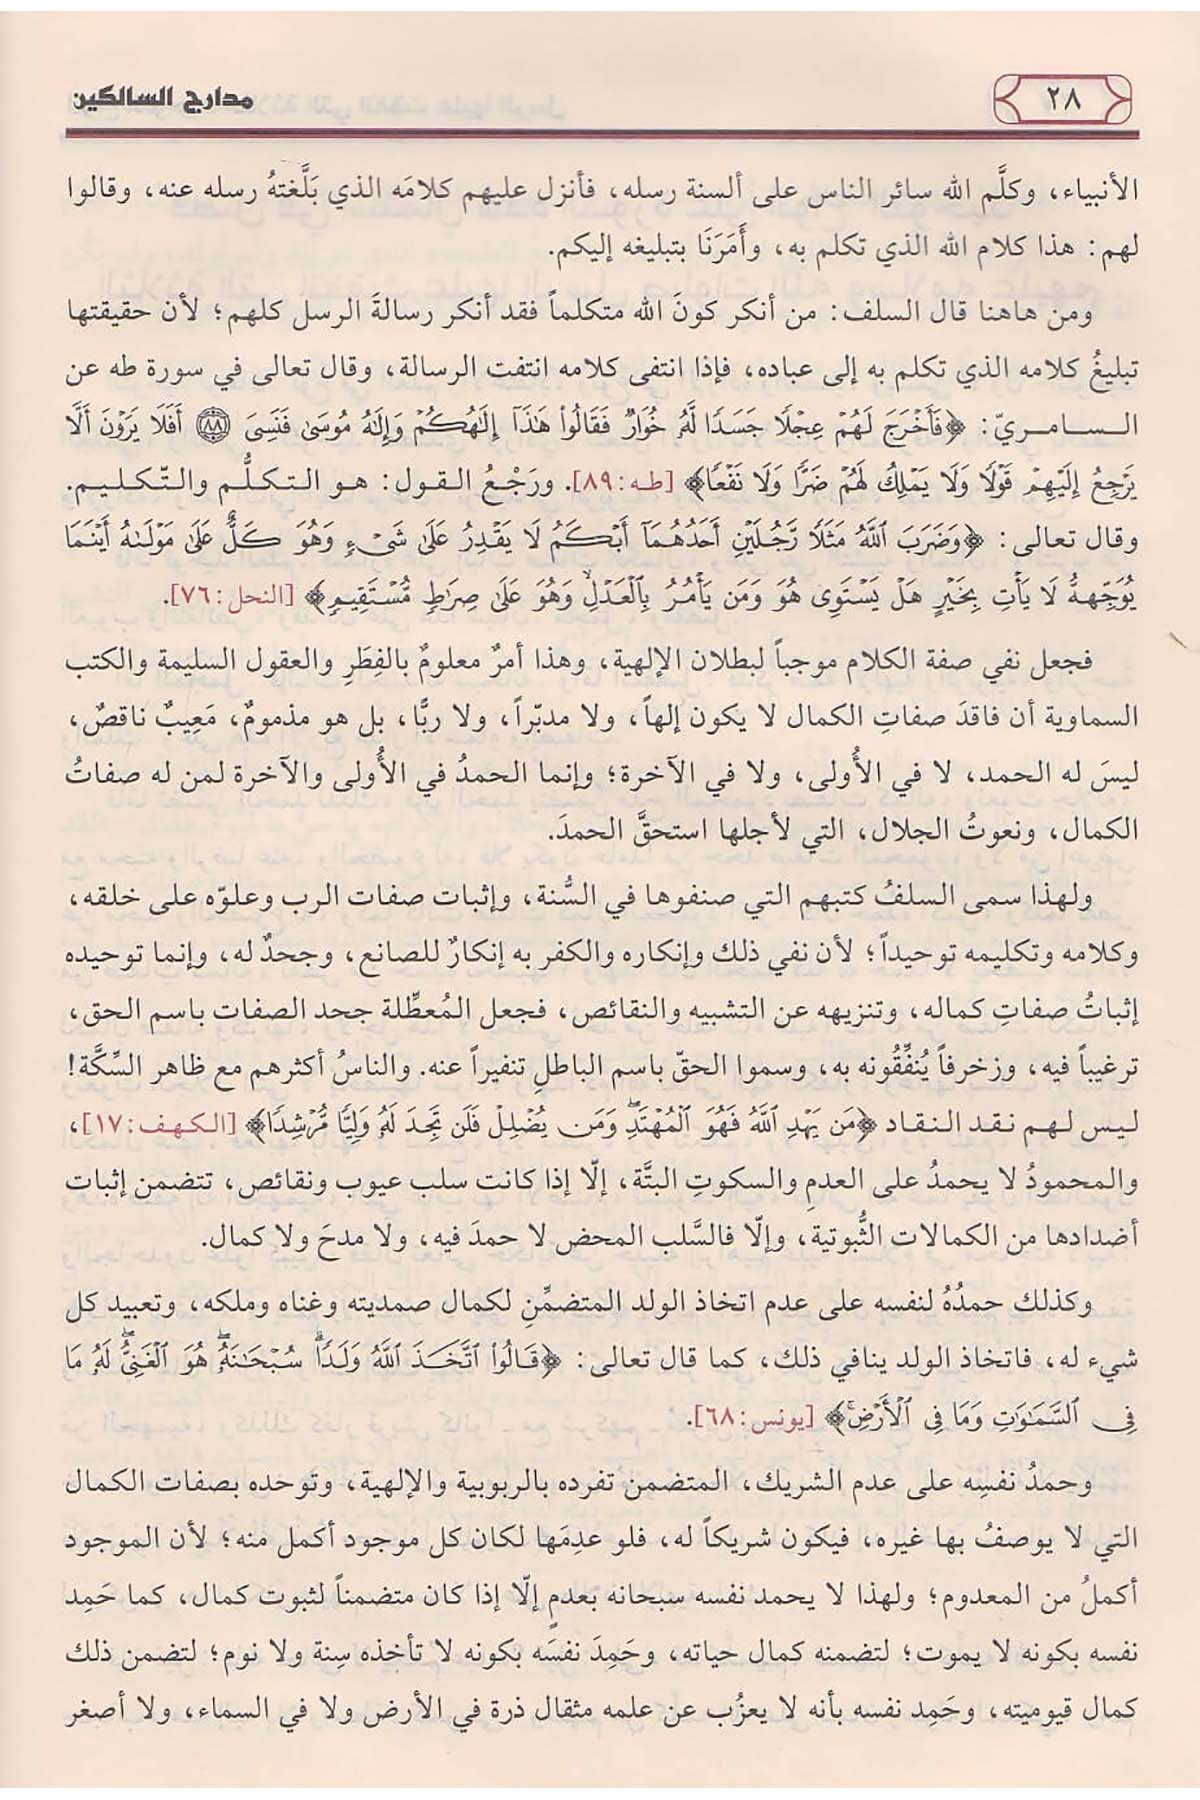 ٢٨
مدارج السالكين
الأنبياء، وكلَّم الله سائر الناس على ألسنة رسله، فأنزل عليهم كلامَه الذي بَلَّغتهُ رسله عنه، وقالوا
لهم: هذا كلام الله الذي تكلم به، وأَمَرَنَا بتبليغه إليكم.
ومن هاهنا قال السلف: من أنكر كونَ الله متكلماً فقد أنكر رسالةَ الرسل كلهم؛ لأن حقيقتها
تبليغُ كلامه الذي تكلم به إلى عباده، فإذا انتفى كلامه انتفت الرسالة، وقال تعالى في سورة طه عن
السامريّ: ﴿فَأَخْرَجَ لَهُمْ عِجْلًا جَسَدًا لَّهُۥ خُوَارٌ فَقَالُوا۟ هَٰذَآ إِلَٰهُكُمْ وَإِلَٰهُ مُوسَىٰ فَنَسِىَ ٨٨ أَفَلَا يَرَوْنَ أَلَّا
يَرْجِعُ إِلَيْهِمْ قَوْلًا وَلَا يَمْلِكُ لَهُمْ ضَرًّا وَلَا نَفْعًا﴾ [طه: ٨٩]. ورَجْعُ القول: هو التكلُّم والتّكليم.
وقال تعالى: ﴿وَضَرَبَ ٱللَّهُ مَثَلًا رَّجُلَيْنِ أَحَدُهُمَآ أَبْكَمُ لَا يَقْدِرُ عَلَىٰ شَىْءٍ وَهُوَ كَلٌّ عَلَىٰ مَوْلَىٰهُ أَيْنَمَا
يُوَجِّههُّ لَا يَأْتِ بِخَيْرٍ هَلْ يَسْتَوِى هُوَ وَمَن يَأْمُرُ بِٱلْعَدْلِ ۙ وَهُوَ عَلَىٰ صِرَٰطٍ مُّسْتَقِيمٍ﴾ [النحل: ٧٦].
فجعل نفي صفة الكلام موجباً لبطلان الإلهية، وهذا أمرٌ معلومٌ بالفِطَرِ والعقول السليمة والكتب
السماوية أن فاقدَ صفاتِ الكمال لا يكون إلهاً، ولا مدبّراً، ولا ربًّا، بل هو مذمومٌ، مَعِيبٌ ناقصٌ،
ليسَ له الحمد، لا في الأُولى، ولا في الآخرة؛ وإنما الحمدُ في الأُولى والآخرة لمن له صفاتُ
الكمال، ونعوتُ الجلال، التي لأجلها استحقَّ الحمدَ.
ولهذا سمى السلفُ كتبهم التي صنفوها في السُّنة، وإثبات صفات الرب وعلوّه على خلقه،
وكلامه وتكليمه توحيداً؛ لأن نفي ذلك وإنكاره والكفر به إنكارٌ للصانع، وجحدٌ له، وإنما توحيده
إثباتُ صفاتِ كماله، وتنزيهه عن التشبيه والنقائص، فجعل المُعطِّلة جحد الصفات باسم الحق،
ترغيباً فيه، وزخرفاً يُنفِّقُونه به، وسموا الحقّ باسم الباطلِ تنفيراً عنه. والناسُ أكثرهم مع ظاهر السِّكَّة!
ليس لهم نقد النقاد ﴿مَن يَهْدِ ٱللَّهُ فَهُوَ ٱلْمُهْتَدِ ۖ وَمَن يُضْلِلْ فَلَن تَجِدَ لَهُۥ وَلِيًّا مُّرْشِدًا﴾ [الكهف: ١٧]،
والمحمودُ لا يحمدُ على العدمِ والسكوتِ البتَّة، إلّا إذا كانت سلب عيوب ونقائص، تتضمن إثبات
أضدادها من الكمالات الثُّبوتية، وإلّا فالسَّلب المحض لا حمدَ فيه، ولا مدحَ ولا كمال.
وكذلك حمدُهُ لنفسه على عدم اتخاذ الولد المتضمِّنِ لكمال صمديته وغناه وملكه، وتعبيد كل
شيء له، فاتخاذ الولد ينافي ذلك، كما قال تعالى: ﴿قَالُوا۟ ٱتَّخَذَ ٱللَّهُ وَلَدًا ۗ سُبْحَٰنَهُۥ ۖ هُوَ ٱلْغَنِىُّ ۖ لَهُۥ مَا
فِى ٱلسَّمَٰوَٰتِ وَمَا فِى ٱلْأَرْضِ ۚ﴾ [يونس: ٦٨].
وحمدُ نفسِه على عدم الشريك، المتضمن تفرده بالربوبية والإلهية، وتوحده بصفات الكمال
التي لا يوصفُ بها غيره، فيكون شريكاً له، فلو عدِمَها لكان كل موجود أكمل منه؛ لأن الموجود
أكملُ من المعدوم؛ ولهذا لا يحمد نفسه سبحانه بعدمٍ إلّا إذا كان متضمناً لثبوت كمال، كما حَمِد
نفسه بكونه لا يموت؛ لتضمنه كمال حياته، وحَمِدَ نفسَه بكونه لا تأخذه سِنة ولا نوم؛ لتضمن ذلك
كمال قيوميته، وحَمِد نفسه بأنه لا يعزُب عن علمه مثقال ذرة في الأرض ولا في السماء، ولا أصغر